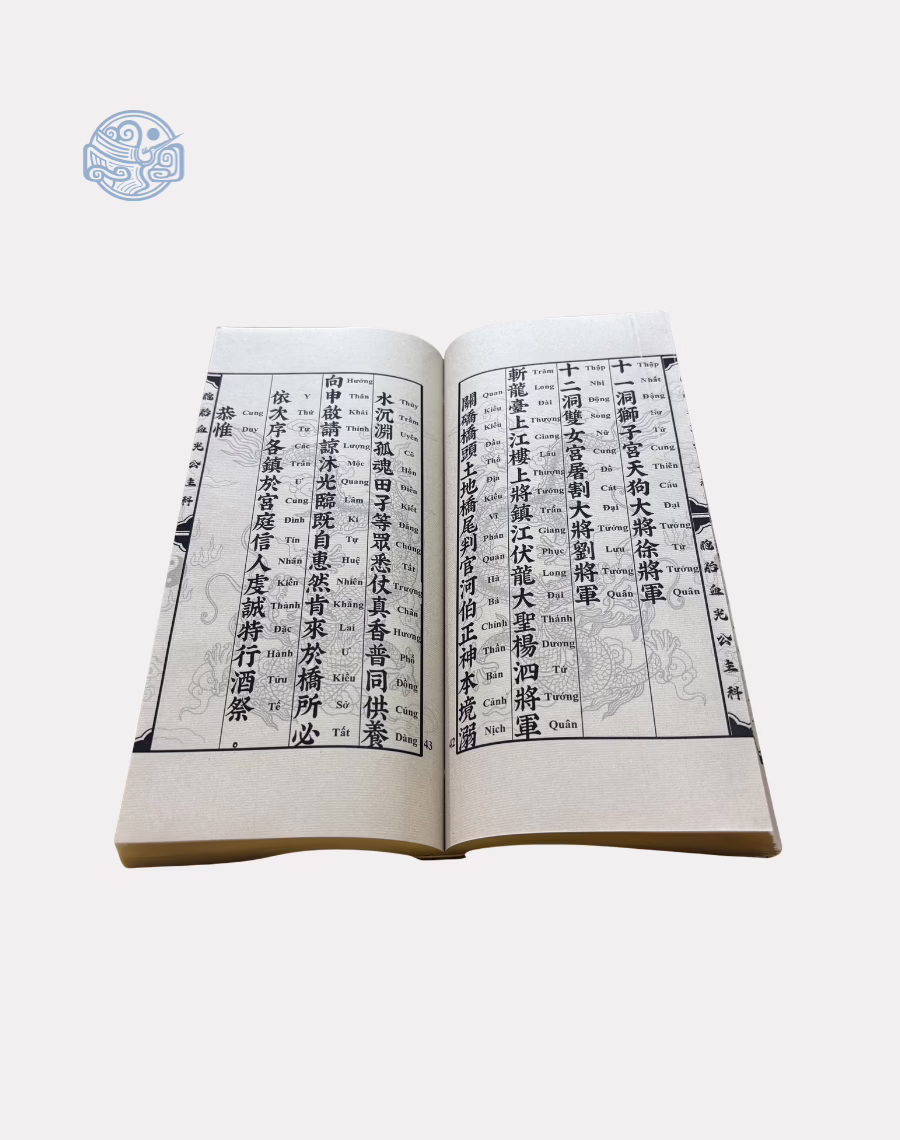 十一洞獅子宮天狗大將徐將軍
Thập Nhất Động Sư Tử Cung Thiên Cẩu Đại Tướng Từ Tướng Quân
十二洞雙女宮屠割大將劉將軍
Thập Nhị Động Song Nữ Cung Đồ Cát Đại Tướng Lưu Tướng Quân
斬龍臺上江樓上將鎮江伏龍大聖楊泗將軍
Trảm Long Đài Thượng Giang Lâu Thượng Tướng Trấn Giang Phục Long Đại Thánh Dương Tứ Tướng Quân
關橋橋頭土地橋尾判官河伯正神本境溺
Quan Kiều Kiều Đầu Thổ Địa Kiều Vĩ Phán Quan Hà Bá Chính Thần Bản Cảnh Nịch
42
水沉淵孤魂田孑等眾悉仗真香普同供養
Thủy Trầm Uyên Cô Hồn Điền Kiết Đẳng Chúng Tất Trượng Chân Hương Phổ Đồng Cúng Dàng
向申啟請諒沐光臨既自惠然肯來於橋所必
Hướng Thân Khải Thỉnh Lượng Mộc Quang Lâm Kí Tự Huệ Nhiên Khẳng Lai U Kiều Sở Tất
依次序各鎮於宮庭信人虔誠特行酒祭。
Y Thứ Tự Các Trấn U Cung Đình Tín Nhân Kiền Thành Đặc Hành Tửu Tế
恭惟
Cung Duy
43
血光公主科